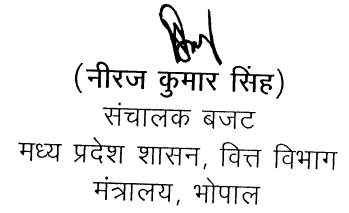 (नीरज कुमार सिंह)
संचालक बजट
मध्य प्रदेश शासन, वित्त विभाग
मंत्रालय, भोपाल